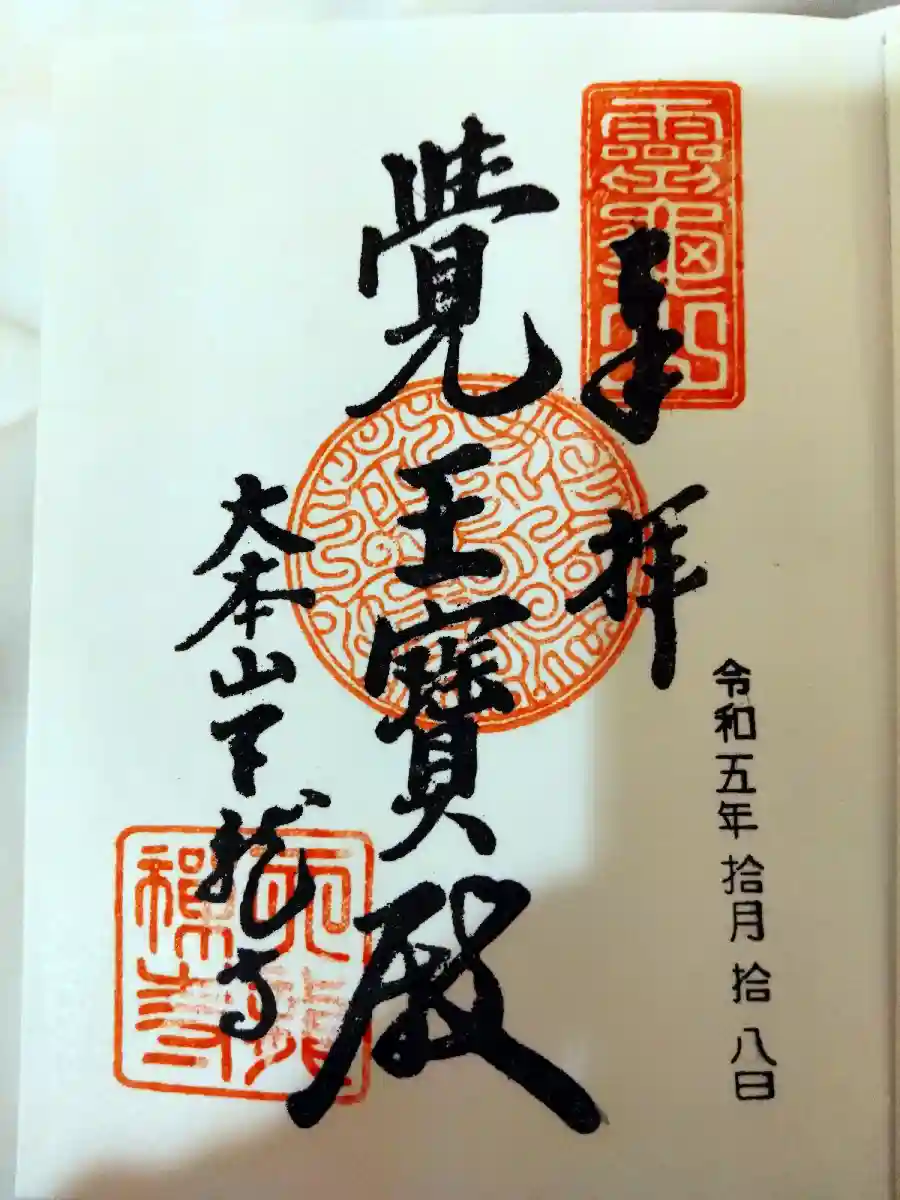 靈龜山
奉拝
令和五年 拾月 拾八日
覺王寶殿
大本山天龍寺
天龍
禪寺